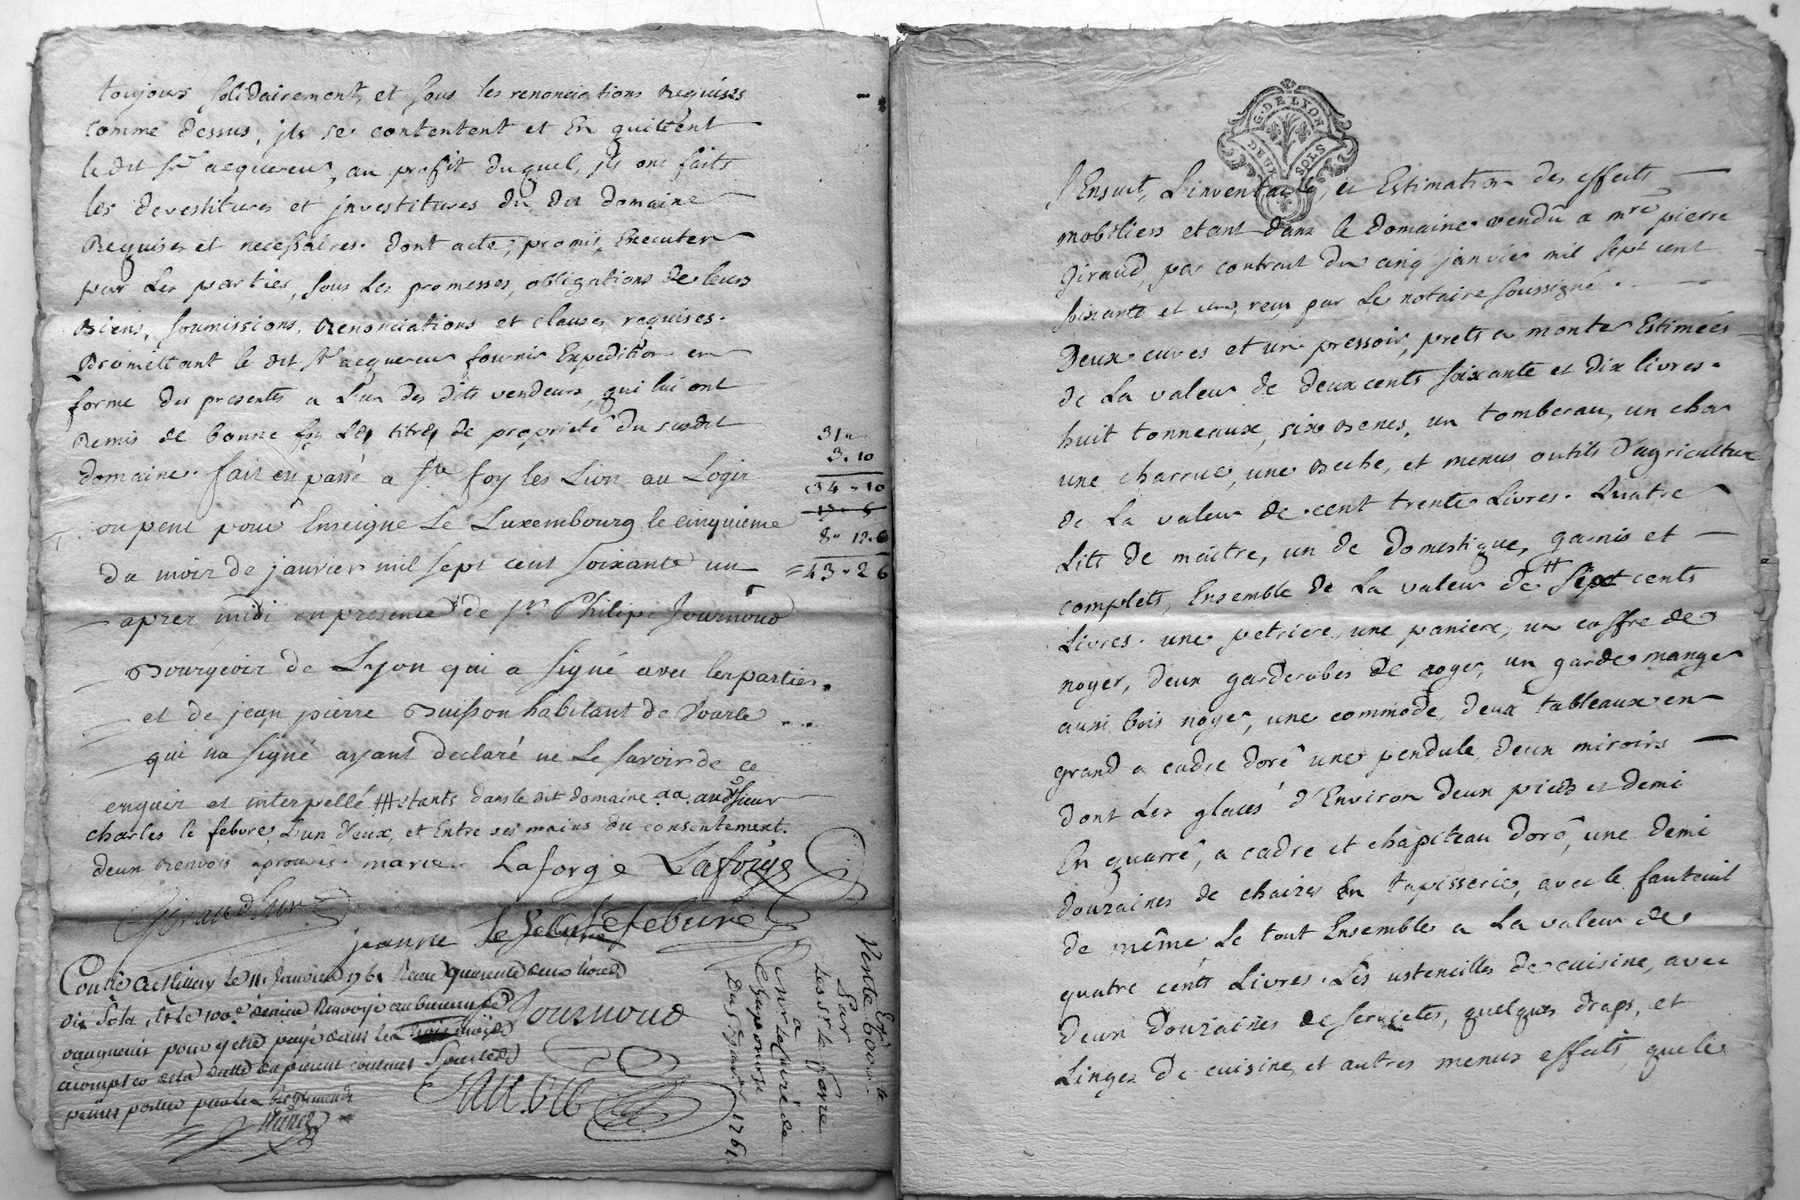 toujours solidairement, et sous les renonciations Requises
comme dessus, jls se contentent et En quittent
le dit Sr acquereur, au profit duquel, jls ont faits
les devestitures et jnvestitures du dit domaine
Requises et necessaires. dont acte, promis, Executer
par Les parties, sous Les promesses, obligations de leurs
Biens, soumissions, Renonciations et clauses requises.
Promettant le dit Sr acquereur fournir Expedition en
forme des presentes a L'un des dits vendeurs, qui lui ont
Remis de bonne foy Les titres de propriété du susdit
domaine. fait et passé a Ste foy les Lion au Logis
ou pent pour Enseigne Le Luxembourg le cinquieme
du mois de janvier mil sept cent soixante un
apres midi en presence de Sr Philipe Journoud
Bourgeois de Lyon qui a signé avec les parties.
et de jean pierre Buisson habitant de
qui na signé ayant declaré ne Le savoir de ce
enquis et interpellé ## etants dans le dit domaine aud. sieur
charles le febvre, L'un d'eux, et Entre ses mains du consentement.
deux Renvois aprouvés. marie Laforge Laforge
31
3. 10
34 - 10
8 - 12. 6
= 43 - 2 6
Giraud
jeanne le febvre Lefebure
le 11 Janvier 1761 Reçu quarente deux livres
dix sols, et le 100e denier Renvoyé au bureau de
pour y etre payé dans les trois mois
a compter de la datte du present contrat
Journoud
Vente de 6000 #
Par
Les Srs le favre
a
Sr
du 5 janvier 1761
G. DE LYON
DEUX SOLS
S'Ensuit, L'inventaire, et Estimation des effects
mobiliers etant dans le domaine vendû a mre pierre
Giraud, par contrat du cinq janvier mil sept cent
soixante et un, reçu par Le notaire soussigné.
Deux cuves et un pressoir, prets a monter Estimées
de La valeur de deux cents soixante et dix livres.
huit tonneaux, six Benes, un tombereau, un char
une charrue, une Beche, et menus outils d'agriculture
de La valeur de cent trente Livres. Quatre
Lits de maitre, un de domestique, garnis et
complets, Ensemble de La valeur de cents
Livres. une petriere, une paniere, un coffre de
noyer, deux garderobes de noyer, un garde manger
aussi bois noyer, une commode, deux tableaux en
grand a cadre doré une pendule, deux miroirs
dont Les glaces d'Environ deux pieds et demi
En quarré, a cadre et chapiteau doré, une demi
douzaines de chaises En tapisserie, avec le fauteuil
de même Le tout Ensemble a La valeur de
quatre cents Livres. Les ustencilles de cuisine, avec
deux douzaines de serviettes, quelques draps, et
Linges de cuisine, et autres menus effets, que le